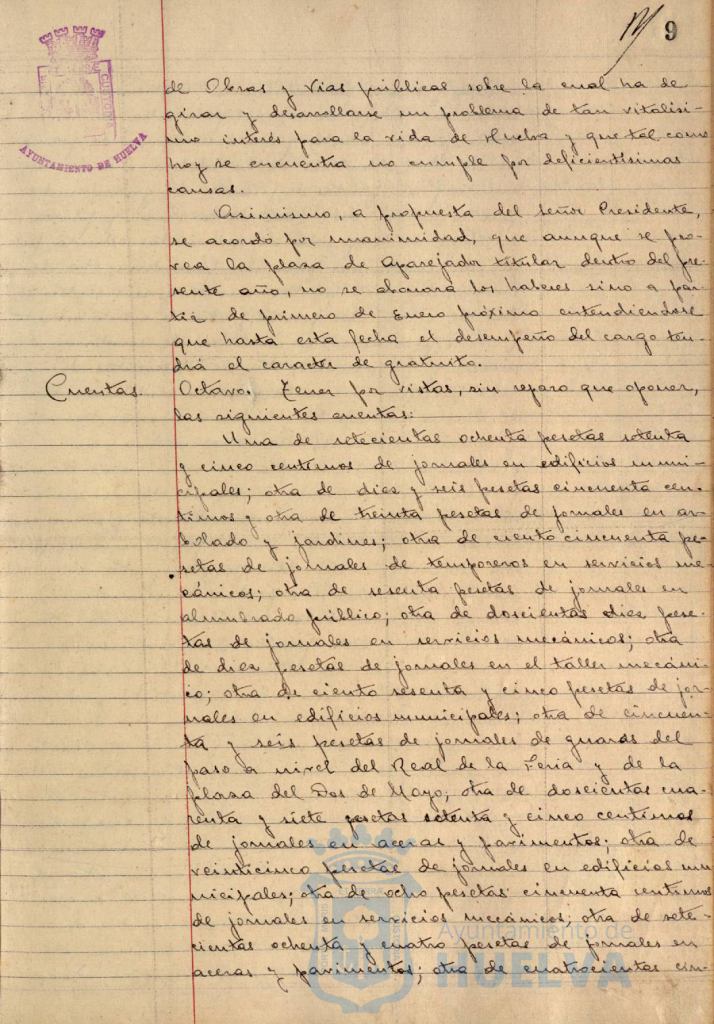 9
AYUNTAMIENTO DE HUELVA
de Obras y Vias publicas sobre la cual ha de
girar y desarrollarse un problema de tan vitalisi-
mo interés para la vida de Huelva y que tal como
hoy se encuentra no cumple por deficientisimas
causas.
Asimismo, a propuesta del señor Presidente,
se acordo por unanimidad, que aunque se pro-
vea la plaza de Aparejador titular dentro del pre-
sente año, no se abonara los haberes sino a par-
tir de primero de Enero próximo entendiendose
que hasta esta fecha el desempeño del cargo ten-
drá el caracter de gratuito.
Cuentas. Octavo. Tener por vistas, sin reparo que oponer,
las siguientes cuentas:
Una de setecientas ochenta pesetas setenta
y cinco centimos de jornales en edificios muni-
cipales; otra de diez y seis pesetas cincuenta cen-
timos y otra de treinta pesetas de jornales en ar-
bolado y jardines; otra de ciento cincuenta pe-
setas de jornales de temporeros en servicios me-
cánicos; otra de sesenta pesetas de jornales en
alumbrado público; otra de doscientas diez pese-
tas de jornales en servicios mecánicos; otra
de diez pesetas de jornales en el taller mecáni-
co; otra de ciento sesenta y cinco pesetas de jor-
nales en edificios municipales; otra de cincuen-
ta y seis pesetas de jornales de guardas del
paso a nivel del Real de la Feria y de la
plaza del Dos de Mayo; otra de doscientas cua-
renta y siete pesetas setenta y cinco centimos
de jornales en aceras y pavimentos; otra de
veinticinco pesetas de jornales en edificios mu
nicipales; otra de ocho pesetas cincuenta centimos
de jornales en servicios mecánicos; otra de sete-
cientas ochenta y cuatro pesetas de jornales en
aceras y pavimentos; otra de cuatrocientas cin-
Ayuntamiento de
HUELVA